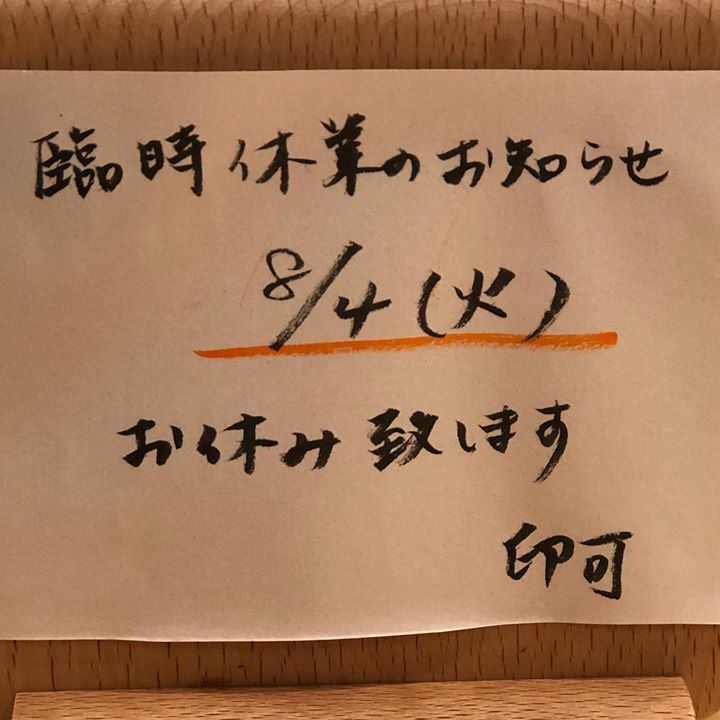 臨時休業のお知らせ
8/4(火)
お休み致します
印可